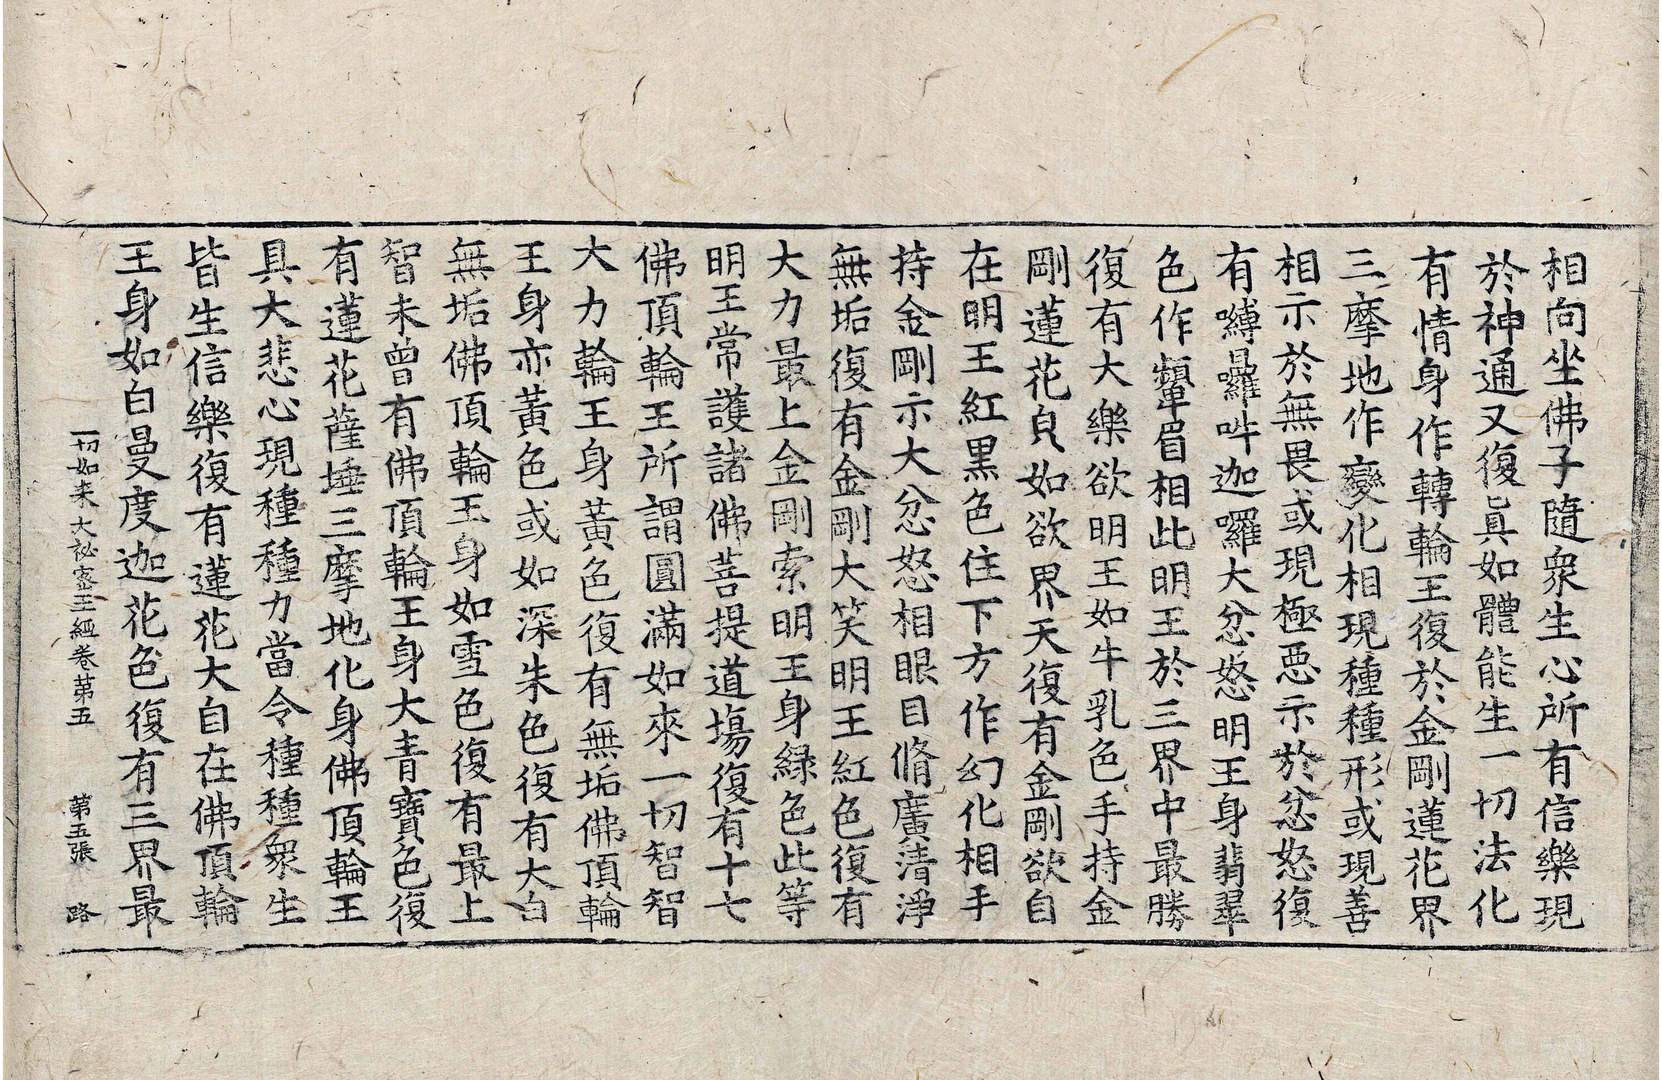 相向坐佛子隨衆生心所有信樂現
於神通又復眞如體能生一切法化
有情身作轉輪王復於金剛蓮花界
三摩地作變化相現種種形或現善
相示於無畏或現極惡示於忿怒復
有嚩曩囉吽迦囉大忿怒明王身翡翠
色作顰眉相此明王於三界中最勝
復有大樂欲明王如牛乳色手持金
剛蓮花貞如欲界天復有金剛欲自
在明王紅黑色住下方作幻化相手
持金剛示大忿怒相眼目脩廣清淨
無垢復有金剛大笑明王紅色復有
大力最上金剛索明王身緑色此等
明王常護諸佛菩提道場復有十七
佛頂輪王所謂圓滿如來一切智智
大力輪王身黃色復有無垢佛頂輪
王身亦黃色或如深朱色復有大白
無垢佛頂輪王身如雪色復有最上
智未曾有佛頂輪王身大青寶色復
有蓮花薩埵三摩地化身佛頂輪王
具大悲心現種種力當令種種衆生
皆生信樂復有蓮花大自在佛頂輪
王身如白曼度迦花色復有三界最
一切如来大祕密王經卷第五 第五張 路